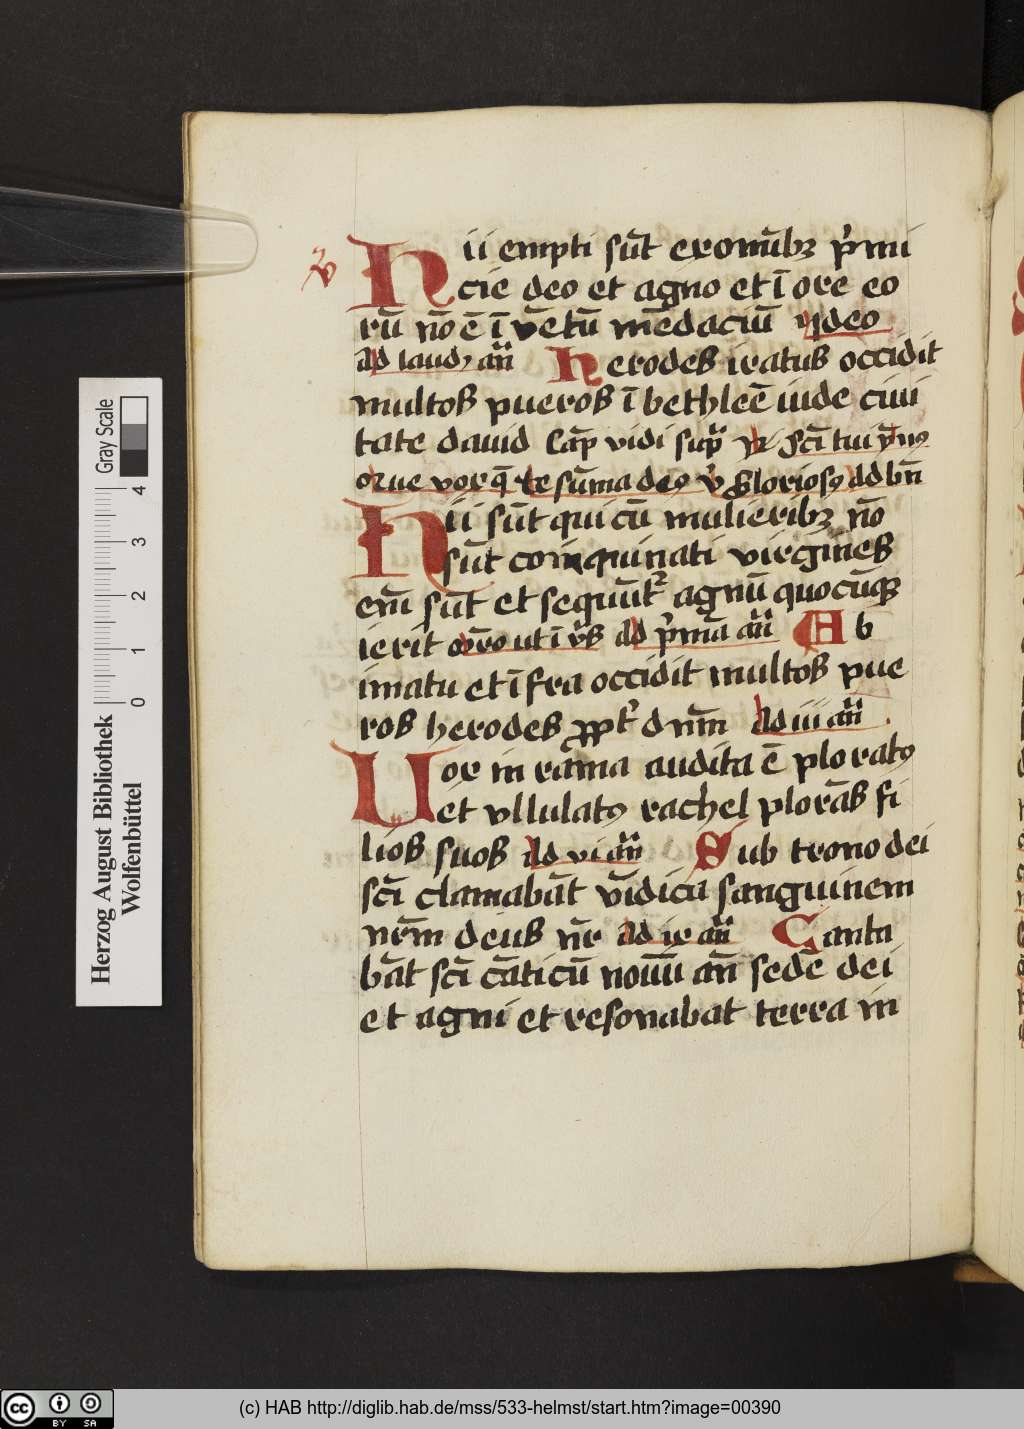 Hii empti sūt ex omībꝫ p̓mi
cie deo et agno et ī ore eo
rū nō ē ī vētū mēdaciū deo
ad laudꝫ añ Herodes iratus occidit
multos pueros ī bethleē iude ciui
tate dauid Cap̄ vidi sup̄ sc̄i tui
sūma deꝰ Gloriosꝰ ad bñ
Hii sūt qui cū mulieribꝫ nō
sūt coinquinati virgines
em̄ sūt et sequūt agnū quocūqꝫ
ierit ut ī ad p̓mā añ Ab
imatu et īfra occidit multos pue
ros herodes ꝓpt̓ dnm̄ ad iii añ
Uox in rama audita ē ploratꝰ
et vllulatꝰ rachel plorās fi
lios suos ad vi añ Sub trono dei
sc̄i clamabāt vīdica sanguinem
nr̄m deus nr̄ ad ix añ Canta
bāt sc̄i cāticū nouū añ sedē dei
et agni et resonabat terra in
Gray Scale
0 1 2 3 4
Herzog August Bibliothek
Wolfenbüttel
cc BY SA
(c) HAB http://diglib.hab.de/mss/533-helmst/start.htm?image=00390